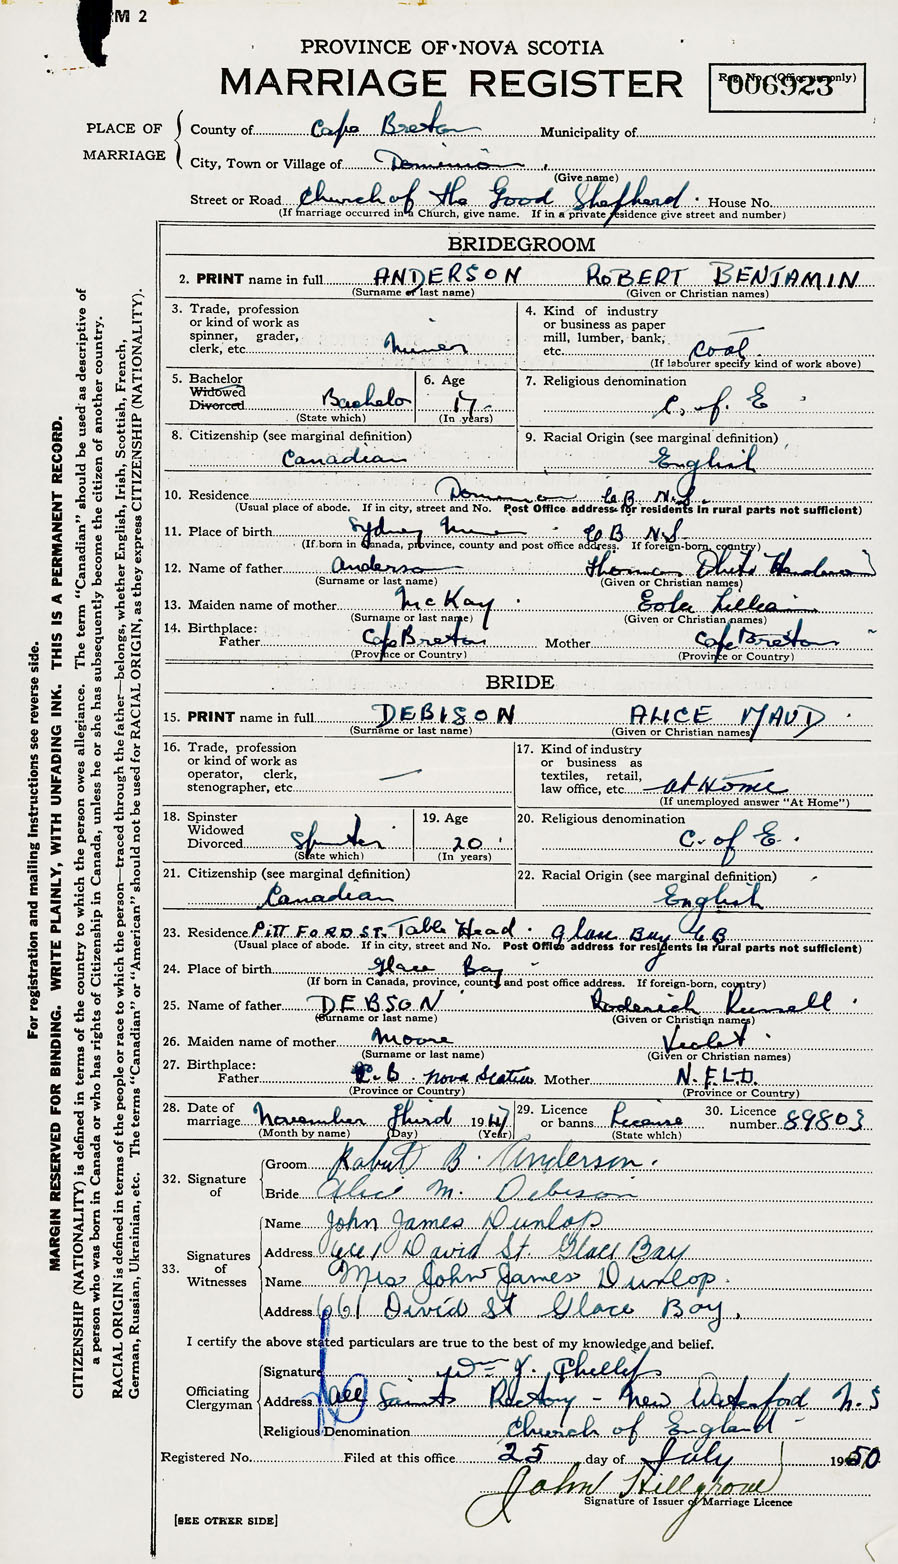 RM 2
PROVINCE OF NOVA SCOTIA
MARRIAGE REGISTER
Reg. No. (Office use only)
006923
PLACE OF MARRIAGE
County of Cape Breton Municipality of
City, Town or Village of Dominion
(Give name)
Street or Road Church of the Good Shepherd House No.
(If marriage occurred in a Church, give name. If in a private residence give street and number)
BRIDEGROOM
2. PRINT name in full ANDERSON ROBERT BENJAMIN
(Surname or last name) (Given or Christian names)
3. Trade, profession or kind of work as spinner, grader, clerk, etc. Miner
4. Kind of industry or business as paper mill, lumber, bank, etc. Coal
(If labourer specify kind of work above)
5. Bachelor Widowed Divorced Bachelor
(State which)
6. Age 17
(In years)
7. Religious denomination C. of E
8. Citizenship (see marginal definition)
Canadian
9. Racial Origin (see marginal definition)
English
10. Residence Dominion C B N.S.
(Usual place of abode. If in city, street and No. Post Office address for residents in rural parts not sufficient)
11. Place of birth Sydney Mines C B N.S.
(If born in Canada, province, county and post office address. If foreign-born, country)
12. Name of father Anderson Thomas
(Surname or last name) (Given or Christian names)
13. Maiden name of mother McKay Lillian
(Surname or last name) (Given or Christian names)
14. Birthplace:
Father Cape Breton Mother Cape Breton
(Province or Country) (Province or Country)
BRIDE
15. PRINT name in full DEBISON ALICE MAUD
(Surname or last name) (Given or Christian names)
16. Trade, profession or kind of work as operator, clerk, stenographer, etc. —
17. Kind of industry or business as textiles, retail, law office, etc. at Home
(If unemployed answer "At Home")
18. Spinster Widowed Divorced Spinster
(State which)
19. Age 20
(In years)
20. Religious denomination
C. of E.
21. Citizenship (see marginal definition)
Canadian
22. Racial Origin (see marginal definition)
English
23. Residence PITT FORD ST. Table Head. Glace Bay C B
(Usual place of abode. If in city, street and No. Post Office address for residents in rural parts not sufficient)
24. Place of birth Glace Bay
(If born in Canada, province, county and post office address. If foreign-born, country)
25. Name of father DEBSON Roderick Russell
(Surname or last name) (Given or Christian names)
26. Maiden name of mother Moore Violet
(Surname or last name) (Given or Christian names)
27. Birthplace:
Father C.B. Nova Scotia Mother N.F.L.D.
(Province or Country) (Province or Country)
28. Date of marriage November third 1947
(Month by name) (Day) (Year)
29. Licence or banns License
(State which)
30. Licence number 89803
32. Signature of
Groom Robert B. Anderson.
Bride Alice M. Debison
33. Signatures of Witnesses
Name John James Dunlop
Address 661 David St Glace Bay
Name Mrs John James Dunlop.
Address 661 David St Glace Bay.
I certify the above stated particulars are true to the best of my knowledge and belief.
Officiating Clergyman
Signature Wm J. Phillips
Address All Saints Rectory - New Waterford N.S
Religious Denomination Church of England
Registered No. Filed at this office 25 day of July 1950
John Hillgrove
Signature of Issuer of Marriage Licence
[SEE OTHER SIDE]
For registration and mailing instructions see reverse side.
MARGIN RESERVED FOR BINDING. WRITE PLAINLY, WITH UNFADING INK. THIS IS A PERMANENT RECORD.
CITIZENSHIP (NATIONALITY) is defined in terms of the country to which the person owes allegiance. The term "Canadian" should be used as descriptive of
a person who was born in Canada or who has rights of Citizenship in Canada, unless he or she has subsequently become the citizen of another country.
RACIAL ORIGIN is defined in terms of the people or race to which the person—traced through the father—belongs, whether English, Irish, Scottish, French,
German, Russian, Ukrainian, etc. The terms "Canadian" or "American" should not be used for RACIAL ORIGIN, as they express CITIZENSHIP (NATIONALITY).